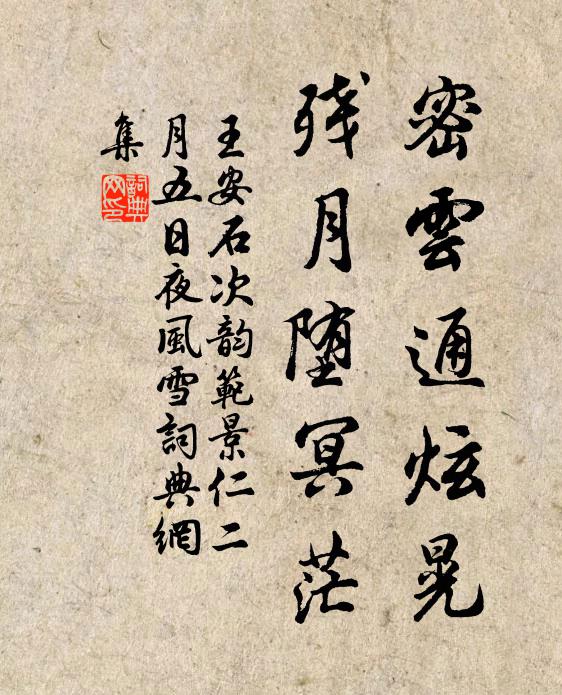 密雲通炫晃
残月堕冥茫
王安石次韵範景仁二
月五日夜風雪詞典網
集
詞典
网印